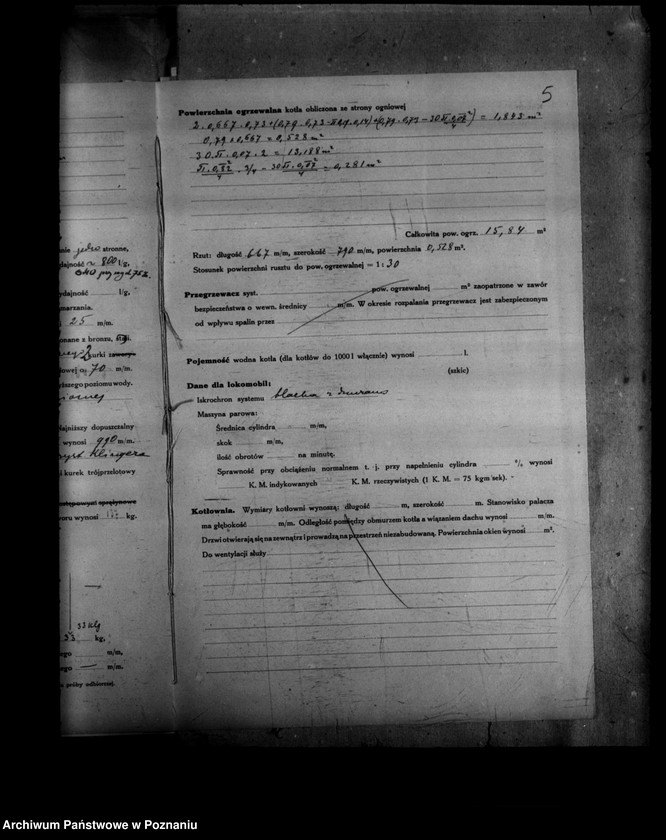 5
Powierzchnia ogrzewalna kotła obliczona ze strony ogniowej
2 · 0,667 · 0,73 + (0,79 · 0,73 = 1,843 m²
0,79 · 0,667 = 0,528 m²
30 π · 0,07 · 2 = 13,188 m²
· 3/4 − 30 = 0,281 m²
Całkowita pow. ogrz. 15,84 m²
Rzut: długość 667 m/m, szerokość 790 m/m, powierzchnia 0,528 m².
Stosunek powierzchni rusztu do pow. ogrzewalnej = 1 : 30
Przegrzewacz syst. pow. ogrzewalnej m² zaopatrzone w zawór
bezpieczeństwa o wewn. średnicy m/m. W okresie rozpalania przegrzewacz jest zabezpieczonym
od wpływu spalin przez
Pojemność wodna kotła (dla kotłów do 1000 l włącznie) wynosi l.
(szkic)
Dane dla lokomobil:
Iskrochron systemu blacha z
Maszyna parowa:
Średnica cylindra m/m,
skok m/m,
ilość obrotów na minutę.
Sprawność przy obciążeniu normalnem t. j. przy napełnieniu cylindra % wynosi
K. M. indykowanych K. M. rzeczywistych (1 K. M. = 75 kgm sek).
Kotłownia. Wymiary kotłowni wynoszą: długość m, szerokość m. Stanowisko palacza
ma głębokość m/m. Odległość pomiędzy obmurzem kotła a wiązaniem dachu wynosi m/m.
Drzwi otwierają się na zewnątrz i prowadzą na przestrzeń niezabudowaną. Powierzchnia okien wynosi m².
Do wentylacji służy
jedno stronne,
800 l/g,
l/g.
25 m/m.
z bronzu, stali.
kurki
70 m/m.
poziomu wody.
dopuszczalny
wynosi 990 m/m.
Klingera
i kurek trójprzelotowy
wynosi kg.
33 klg
33 kg,
m/m,
m/m.
próby odbiorczej.
Archiwum Państwowe w Poznaniu